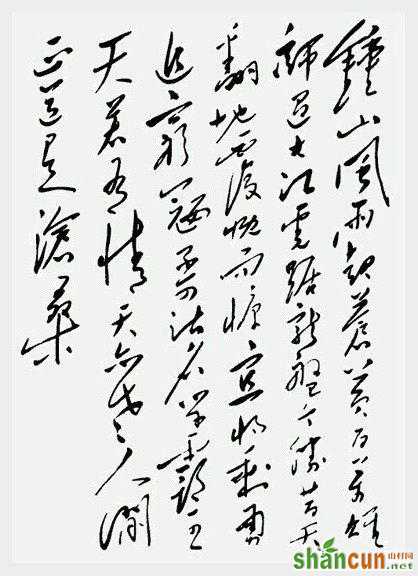 鐘山風雨起蒼黃百萬雄
師過大江虎踞龍盤今勝昔天
翻地覆慨而慷宜將剩勇
追窮寇不可沽名學霸王
天若有情天亦老人間
正道是滄桑
shancun
山村网
.net